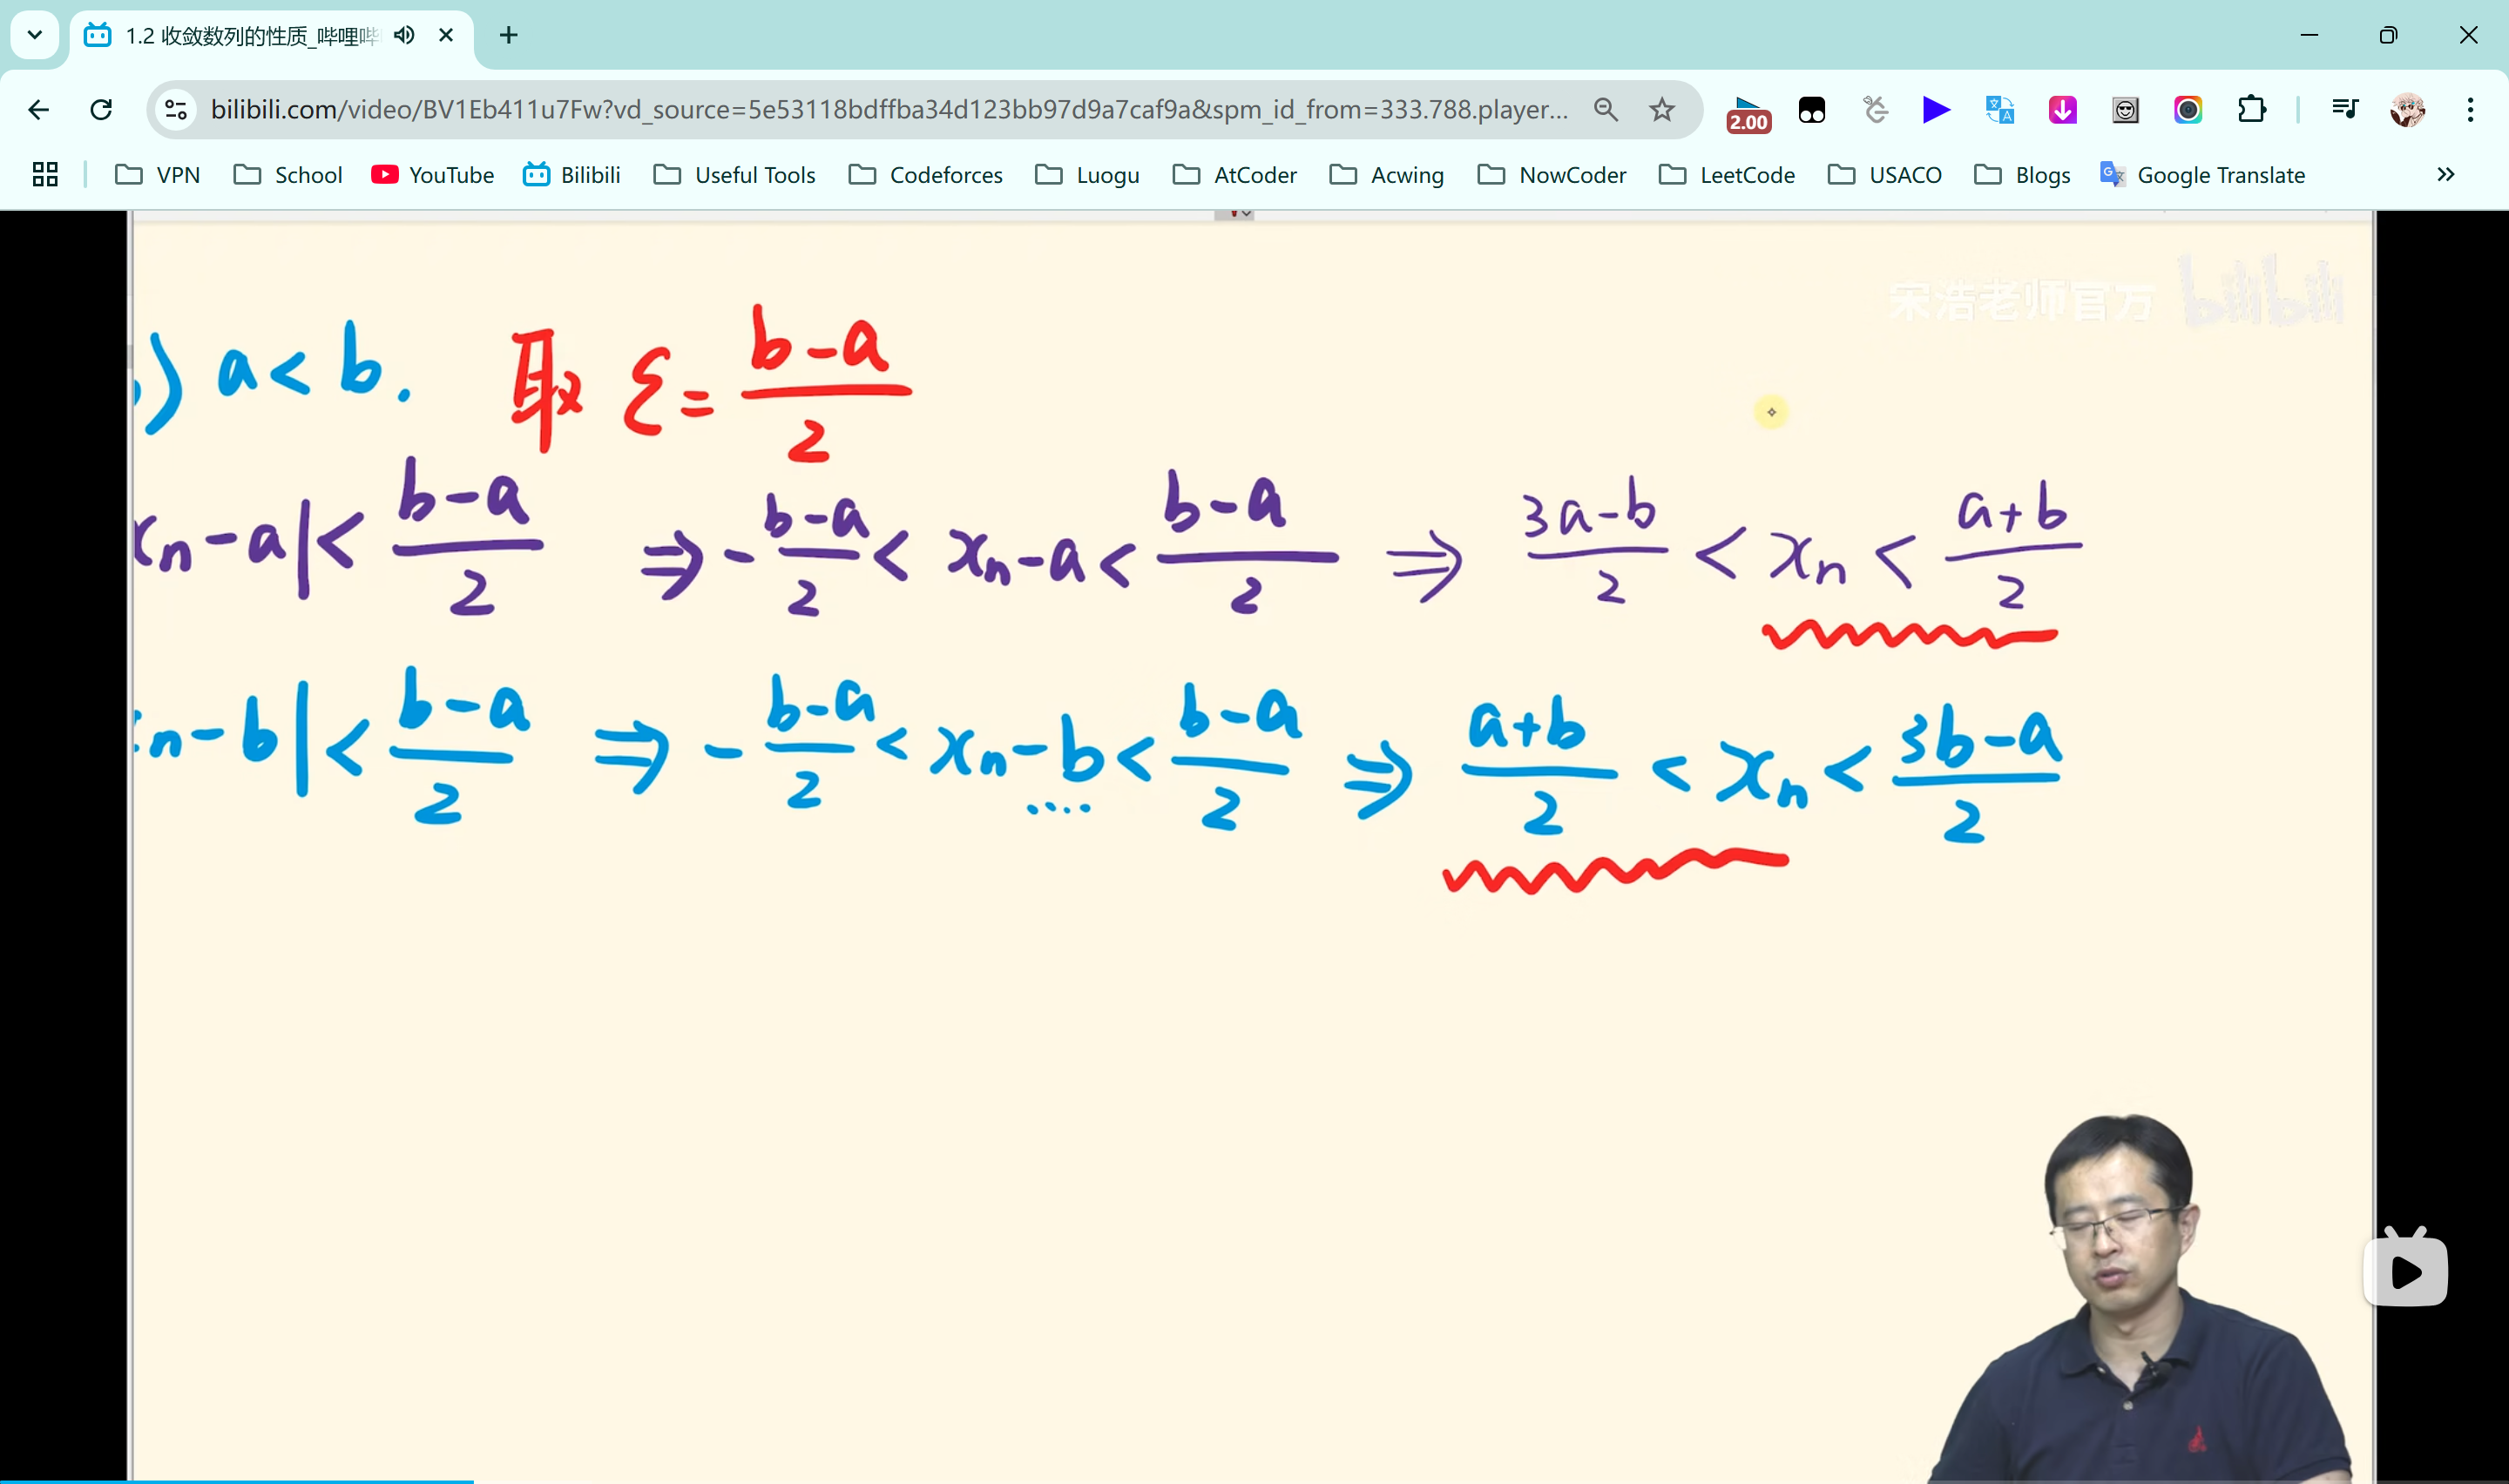 1.2 收敛数列的性质_哔哩哔
bilibili.com/video/BV1Eb411u7Fw?vd_source=5e53118bdffba34d123bb97d9a7caf9a&spm_id_from=333.788.player...
2.00
VPN School YouTube Bilibili Useful Tools Codeforces Luogu AtCoder Acwing NowCoder LeetCode USACO Blogs Google Translate »
宋浩老师官方 bilibili
) a<b. 取 ε= (b-a)/2
xn-a|< (b-a)/2 ⇒ -(b-a)/2 < xn-a < (b-a)/2 ⇒ (3a-b)/2 < xn < (a+b)/2
n-b|< (b-a)/2 ⇒ -(b-a)/2 < xn-b < (b-a)/2 ⇒ (a+b)/2 < xn < (3b-a)/2